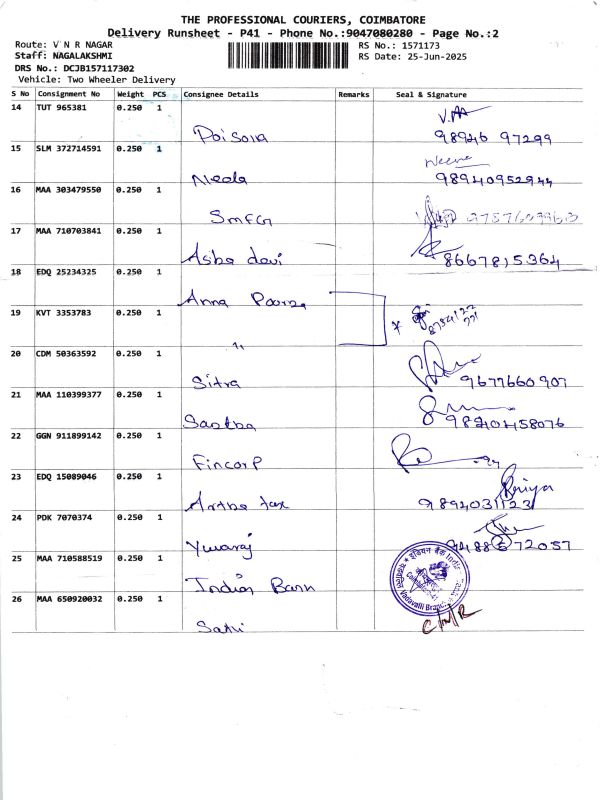 THE PROFESSIONAL COURIERS, COIMBATORE
Delivery Runsheet - P41 - Phone No.:9047080280 - Page No.:2
Route: V N R NAGAR
RS No.: 1571173
Staff: NAGALAKSHMI
RS Date: 25-Jun-2025
DRS No.: DCJB157117302
Vehicle: Two Wheeler Delivery
S No Consignment No Weight PCS Consignee Details Remarks Seal & Signature
14 TUT 965381 0.250 1
Poisona 98946 97299
15 SLM 372714591 0.250 1
Neela 98940952944
16 MAA 303479550 0.250 1
SMFG
17 MAA 710703841 0.250 1
Asha devi 8667815364
18 EDQ 25234325 0.250 1
Anna Poorna
19 KVT 3353783 0.250 1
"
20 CDM 50363592 0.250 1
Sitra 9677660907
21 MAA 110399377 0.250 1
9840458076
22 GGN 911899142 0.250 1
Fincorp
23 EDQ 15089046 0.250 1
Priya
Artha tax 9894031123
24 PDK 7070374 0.250 1
Yuvaraj 9488672057
25 MAA 710588519 0.250 1
Indian Bank
26 MAA 650920032 0.250 1